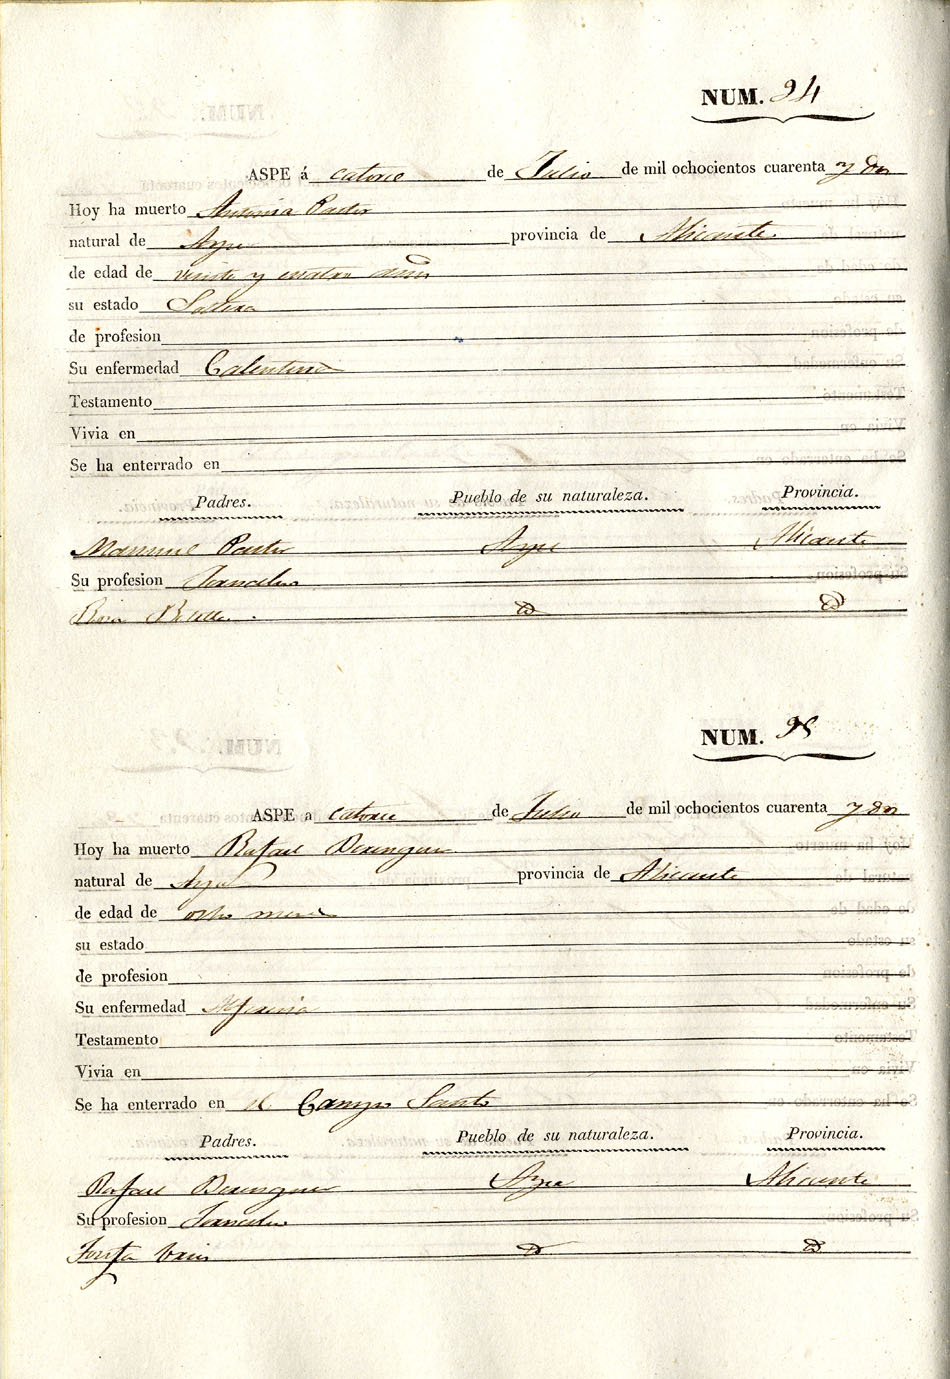 NUM. 94
ASPE á catorce de Julio de mil ochocientos cuarenta y dos
Hoy ha muerto Antonia Pastor
natural de Aspe provincia de Alicante
de edad de veinte y cuatro años
su estado Soltera
de profesion
Su enfermedad Calentura
Testamento
Vivia en
Se ha enterrado en
Padres. Pueblo de su naturaleza. Provincia.
Manuel Pastor Aspe Alicante
Su profesion Jornalero
Rosa
NUM. 95
ASPE a catorce de Julio de mil ochocientos cuarenta y dos
Hoy ha muerto Rafael Berenguer
natural de Aspe provincia de Alicante
de edad de ocho meses
su estado
de profesion
Su enfermedad
Testamento
Vivia en
Se ha enterrado en el Campo Santo
Padres. Pueblo de su naturaleza. Provincia.
Rafael Berenguer Aspe Alicante
Su profesion Jornalero
Josefa